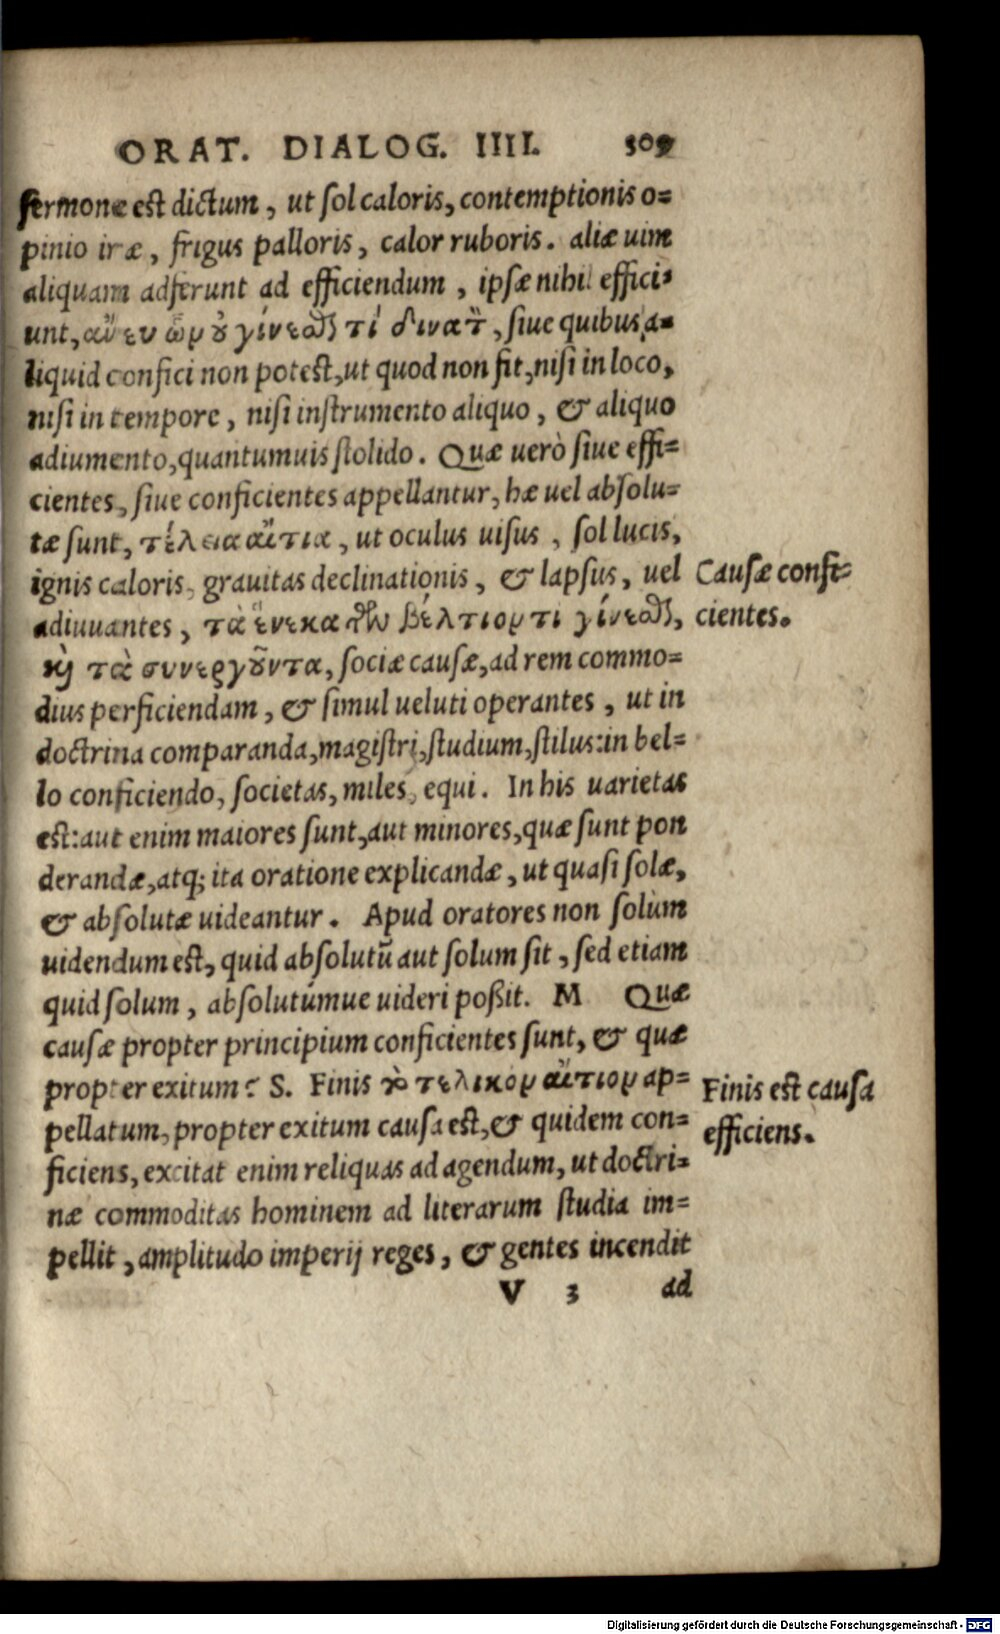 ORAT. DIALOG. IIII. 309
sermone est dictum, ut sol caloris, contemptionis o=
pinio iræ, frigus palloris, calor ruboris. aliæ uim
aliquam adferunt ad efficiendum, ipsæ nihil effici=
unt, ἄνευ ὧν οὐ γίνεσθαί τι δύναται, siue quibus a=
liquid confici non potest, ut quod non fit, nisi in loco,
nisi in tempore, nisi instrumento aliquo, & aliquo
adiumento, quantumuis stolido. Quæ uerò siue effi=
cientes, siue conficientes appellantur, hæ uel absolu=
tæ sunt, τέλεια αἴτια, ut oculus uisus, sol lucis,
ignis caloris, grauitas declinationis, & lapsus, uel
Causæ confi=
adiuuantes, τὰ ἕνεκα τοῦ βέλτιόν τι γίνεσθαι,
cientes.
καὶ τὰ συνεργοῦντα, sociæ causæ, ad rem commo=
dius perficiendam, & simul ueluti operantes, ut in
doctrina comparanda, magistri, studium, stilus: in bel=
lo conficiendo, societas, miles, equi. In his uarietas
est: aut enim maiores sunt, aut minores, quæ sunt pon
derandæ, atq; ita oratione explicandæ, ut quasi solæ,
& absolutæ uideantur. Apud oratores non solùm
uidendum est, quid absolutū aut solum sit, sed etiam
quid solum, absolutúmue uideri poßit. M Quæ
causæ propter principium conficientes sunt, & quæ
propter exitum? S. Finis τὸ τελικὸν αἴτιον ap=
Finis est causa
pellatum, propter exitum causa est, & quidem con=
efficiens.
ficiens, excitat enim reliquas ad agendum, ut doctri=
næ commoditas hominem ad literarum studia im=
pellit, amplitudo imperij reges, & gentes incendit
V 3 ad
Digitalisierung gefördert durch die Deutsche Forschungsgemeinschaft - DFG